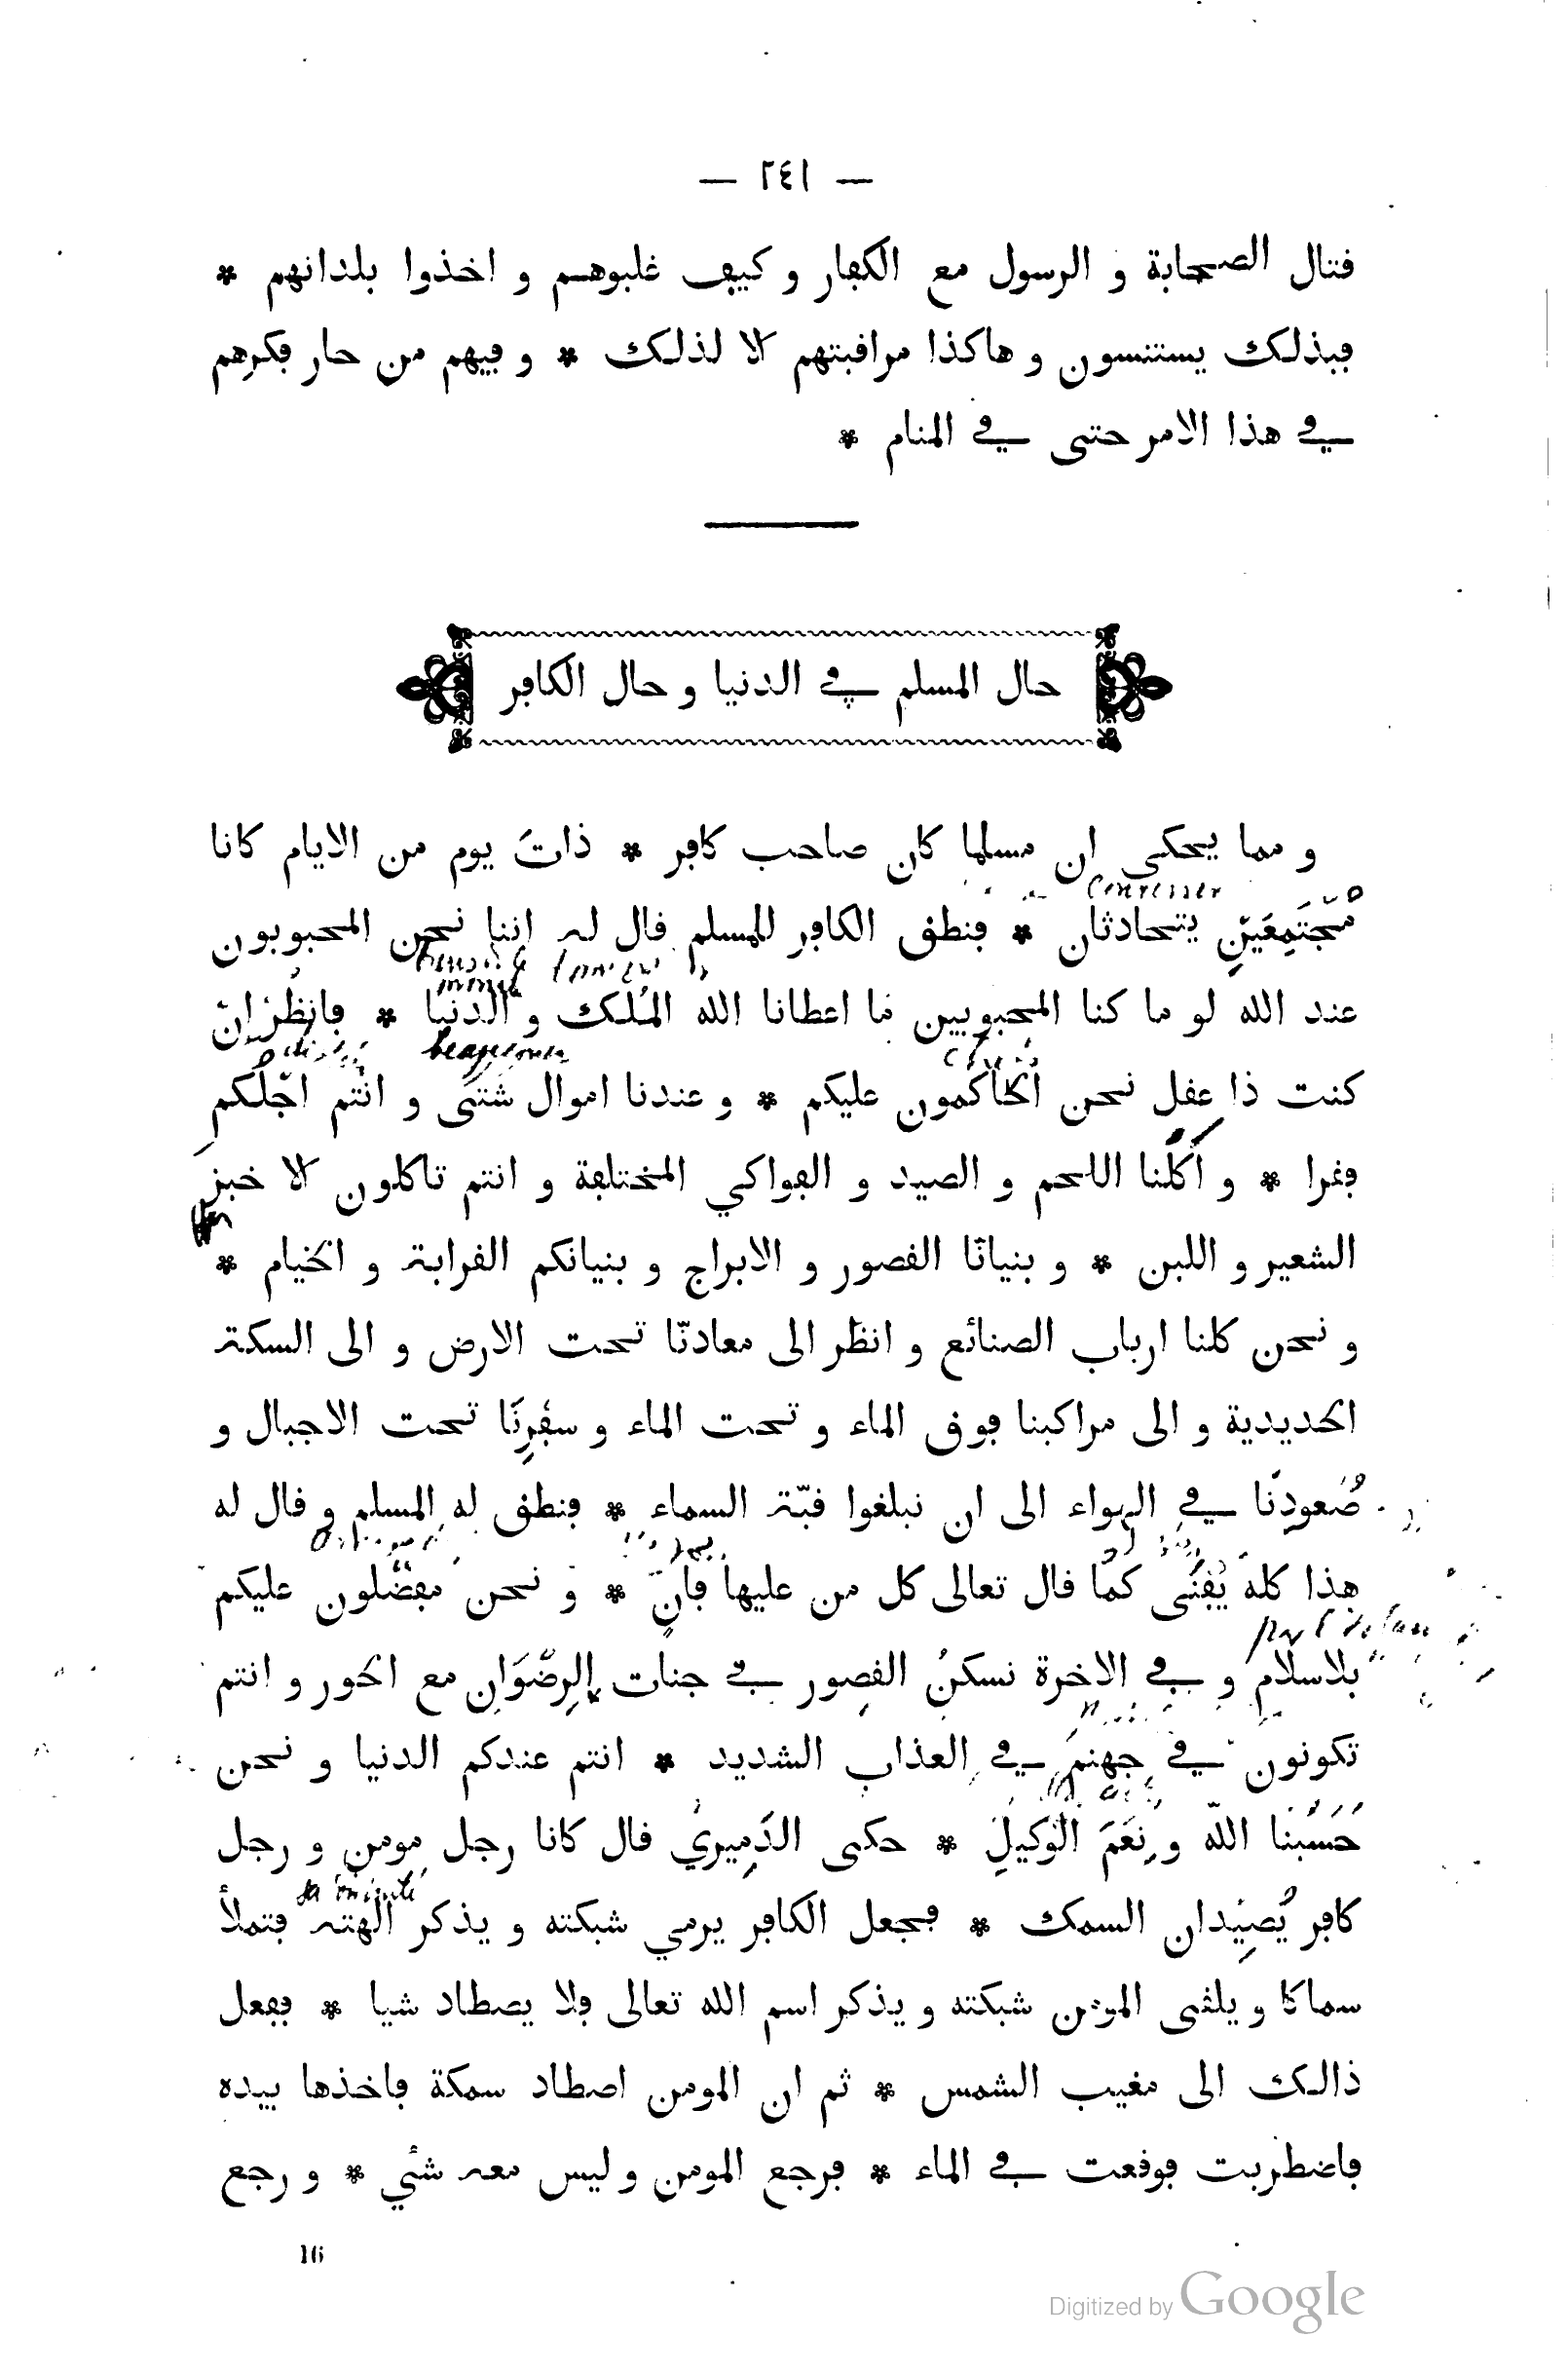 — ٢٤١ —
قتال الصحابة و الرسول مع الكفار و كيف غلبوهم و اخذوا بلدانهم *
فبذلك يستنسون و هاكذا مرافبتهم الا لذلك * و فيهم من حار فكرهم
في هذا الامر حتى في المنام *
حال المسلم في الدنيا و حال الكافر
و مما يحكى ان مسلما كان صاحب كافر * ذاتَ يوم من الايام كانا
مُجْتَمِعَيْنِ يتحادثان * فنطق الكافر للمسلم قال له اننا نحن المحبوبون
عند الله لو ما كنا المحبوبين ما اعطانا الله المُلك و الدنيا * فانظُر إن
كنت ذا عقل نحن الحاكمون عليكم * و عندنا اموال شتى و انتم اجلّكم
فقرا * و أكلنا اللحم و الصيد و الفواكي المختلفة و انتم تاكلون الا خبز
الشعير و اللبن * و بنياننا القصور و الابراج و بنيانكم القرابة و الخيام *
و نحن كلنا ارباب الصنائع و انظر الى معادنّا تحت الارض و الى السكة
الحديدية و الى مراكبنا فوق الماء و تحت الماء و سفرِنَا تحت الاجبال و
صُعودِنَا في الهواء الى ان نبلغوا قبّة السماء * فنطق له المسلم و قال له
هذا كله يَفْنَى كما قال تعالى كل من عليها فانٍ * و نحن مفضّلون عليكم
بلاسلام و في الاخرة نسكنُ القصور في جنات الرِضْوَانِ مع الحور و انتم
تكونون في جهنمَ في العذاب الشديد * انتم عندكم الدنيا و نحن
حَسْبُنا اللّه و نِعْمَ الْوَكيل * حكى الدَمِيري قال كانا رجل مومن و رجل
كافر يُصيّدان السمك * فجعل الكافر يرمي شبكته و يذكر الهته فتملأ
سماكا و يلقى المومن شبكته و يذكر اسم الله تعالى فلا يصطاد شيا * ففعل
ذالك الى مغيب الشمس * ثم ان المومن اصطاد سمكة فاخذها بيده
فاضطربت فوقعت في الماء * فرجع المومن و ليس معه شئي * و رجع
16
Digitized by Google